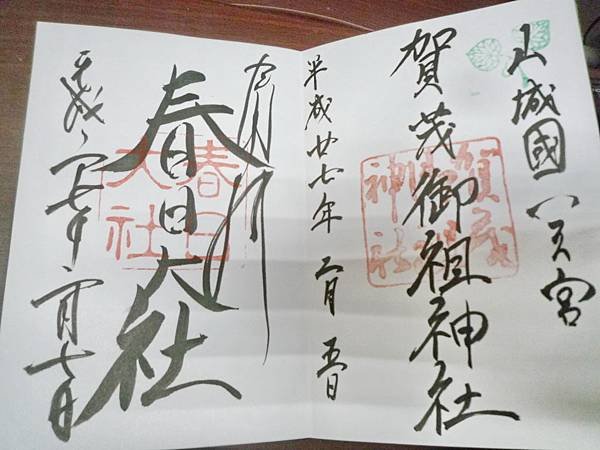 山城國一之宮
賀茂御祖神社
賀茂御祖神社
平成廿七年 二月 五日
奉拝
春日大社
春日大社
平成二十七年二月七日